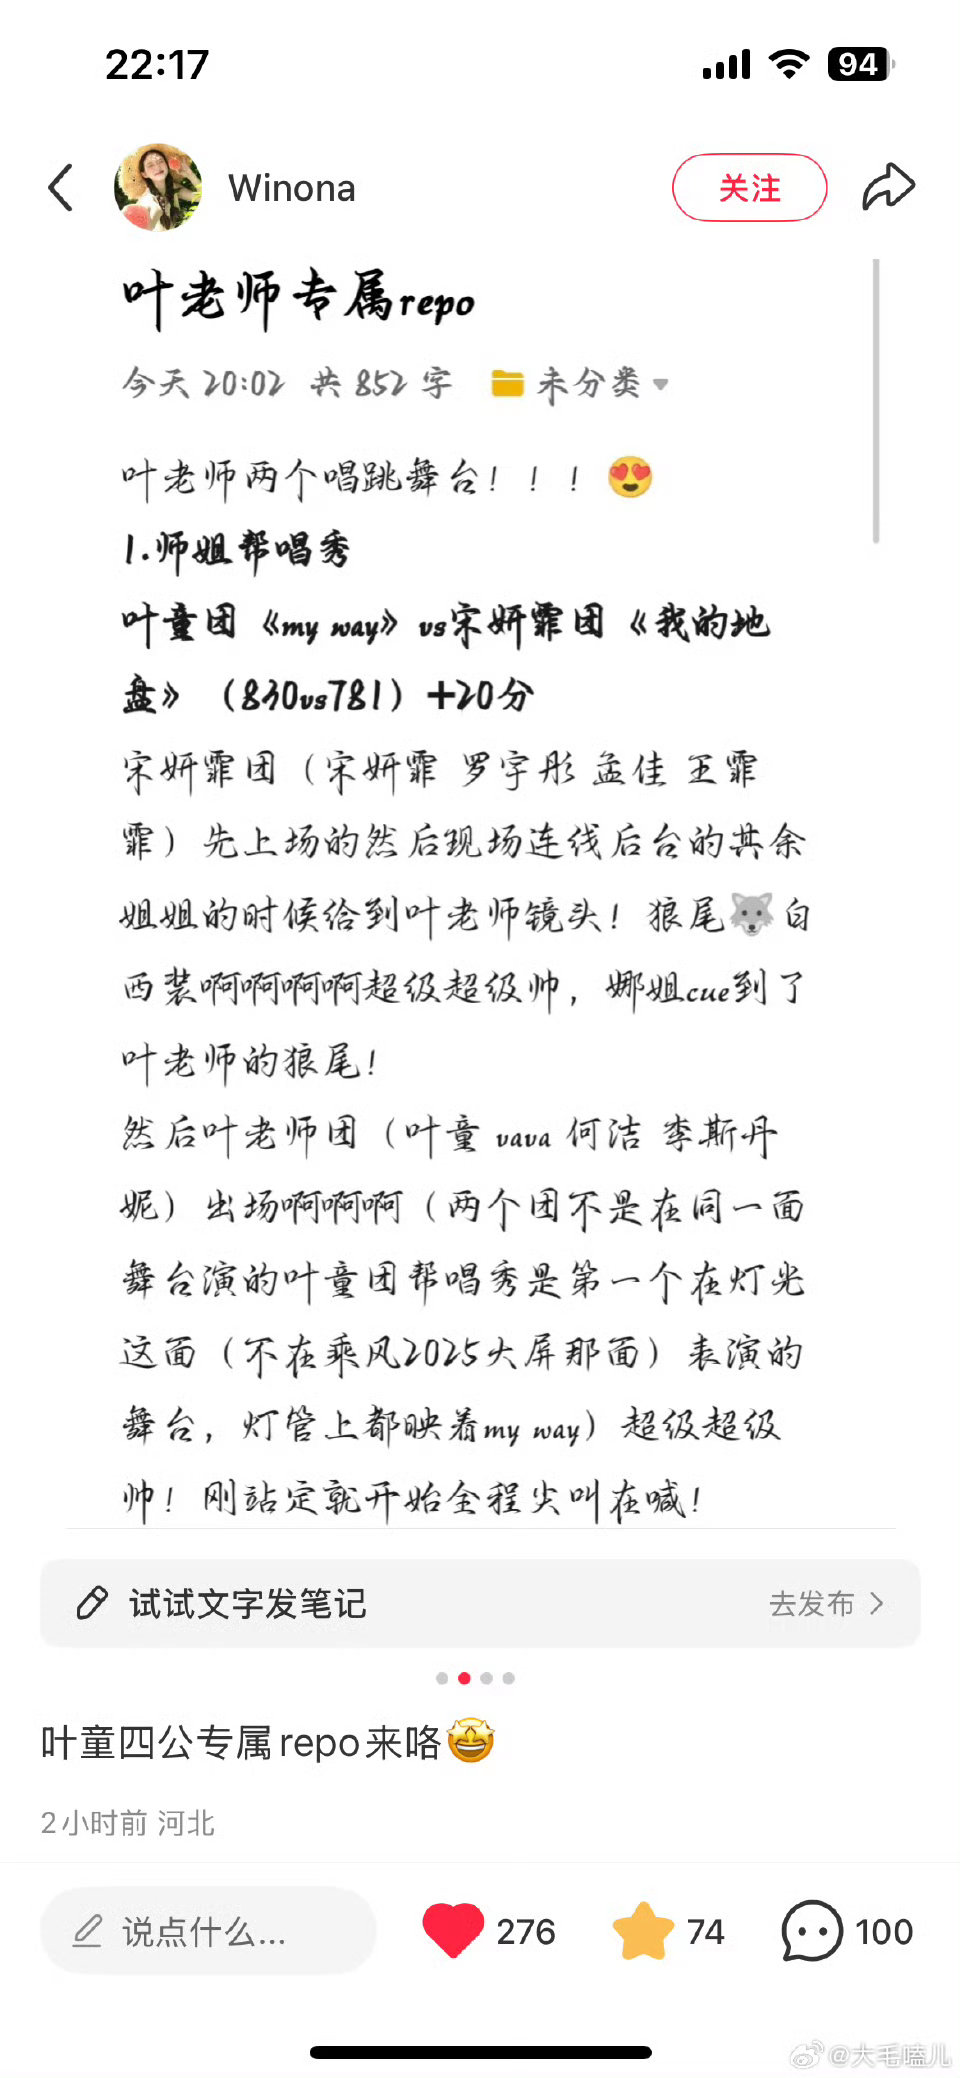 22:17
94
Winona
关注
叶老师专属repo
今天 20:02 共 852 字 未分类
叶老师两个唱跳舞台！！！😍
1.师姐帮唱秀
叶童团《my way》vs宋妍霏团《我的地
盘》（830vs781）+20分
宋妍霏团（宋妍霏 罗宇彤 孟佳 王霏
霏）先上场的然后现场连线后台的其余
姐姐的时候给到叶老师镜头！狼尾🐺白
西装啊啊啊啊超级超级帅，娜姐cue到了
叶老师的狼尾！
然后叶老师团（叶童 vava 何洁 李斯丹
妮）出场啊啊啊（两个团不是在同一面
舞台演的叶童团帮唱秀是第一个在灯光
这面（不在乘风2025大屏那面）表演的
舞台，灯管上都映着my way）超级超级
帅！刚站定就开始全程尖叫在喊！
试试文字发笔记
去发布
叶童四公专属repo来咯🤩
2小时前 河北
说点什么...
276
74
100
@大毛嗑儿